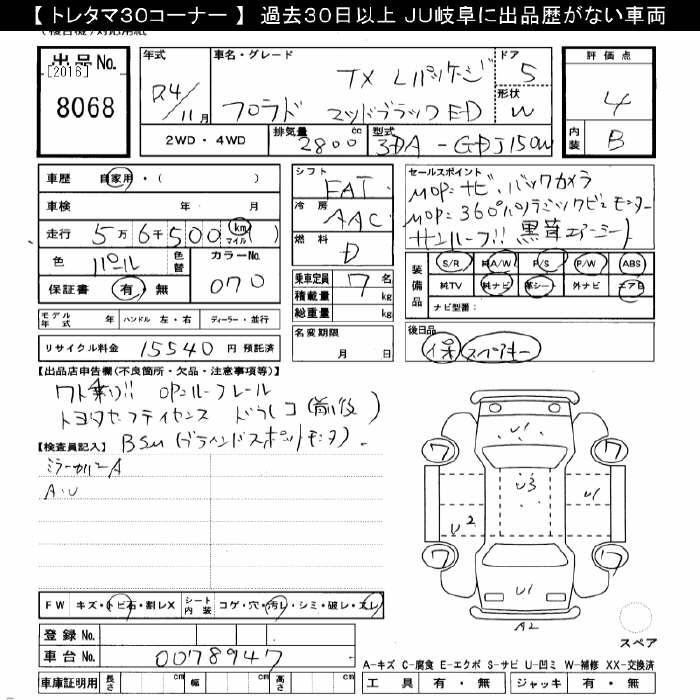 【 トレタマ30コーナー 】 過去30日以上 JU岐阜に出品歴がない車両
出品No.
[2016]
8068
年式
R4/11月
車名・グレード
TX Lパッケージ
プラド マットブラックED
ドア
5
形状
W
評価点
4
内装
B
2WD・4WD
排気量
2800cc
型式
3DA-GDJ150W
車歴 自家用・( )
車検 年 月
走行 5万6千500 km マイル
色 パール 色替
カラーNo. 070
保証書 有・無
シフト
FAT
冷房
AAC
燃料
D
乗車定員 7名
積載量 kg
総重量 kg
名変期限
月 日
セールスポイント
MOP=ナビ、バックカメラ
MOP=360°パノラミックビューモニター
サンルーフ!! 黒革エアーシート
装備品
S/R 純A/W P/S P/W ABS
純TV 純ナビ 革シート 外ナビ エアB
ナビ型番:
後日品
保 スペアキー
モデル年式 年 ハンドル 左・右 ディーラー・並行
リサイクル料金 15540 円 預託済
【出品店申告欄(不良箇所・欠品・注意事項等)】
ワト乗り!! OPルーフレール
トヨタセーフティセンス ドラレコ(前後)
【検査員記入】 BSM(ブラインドスポットモニタ).
ミラーカバーA
A・U
U1
U3
U1
U2
U1
A2
ワ ワ ワ ワ
FW キズ・トビ石・割レX シート内装 コゲ・穴・汚レ・シミ・破レ・スレ
登録No.
車台No. 0078947
スペア
A-キズ C-腐食 E-エクボ S-サビ U-凹ミ W-補修 XX-交換済
車庫証明用 長さ 幅 高さ
工具 有・無 ジャッキ 有・無